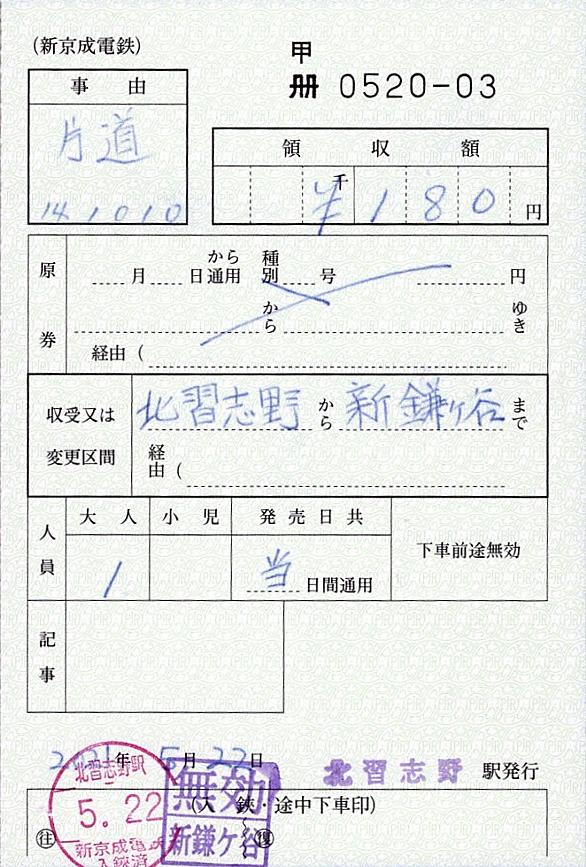 (新京成電鉄)
甲
冊 0520-03
事由
片道
14 1010
領収額
千
¥180円
原券
月 日から通用 種別 号 円
から ゆき
経由 (
収受又は
変更区間
北習志野 から 新鎌ヶ谷 まで
経由 (
人員
大人 小児 発売日共
1 当 日間通用
下車前途無効
記事
2021年5月22日
北習志野 駅発行
北習志野駅
5.22
新京成電
入鋏済
無効
新鎌ケ谷
(入鋏・途中下車印)
往
復